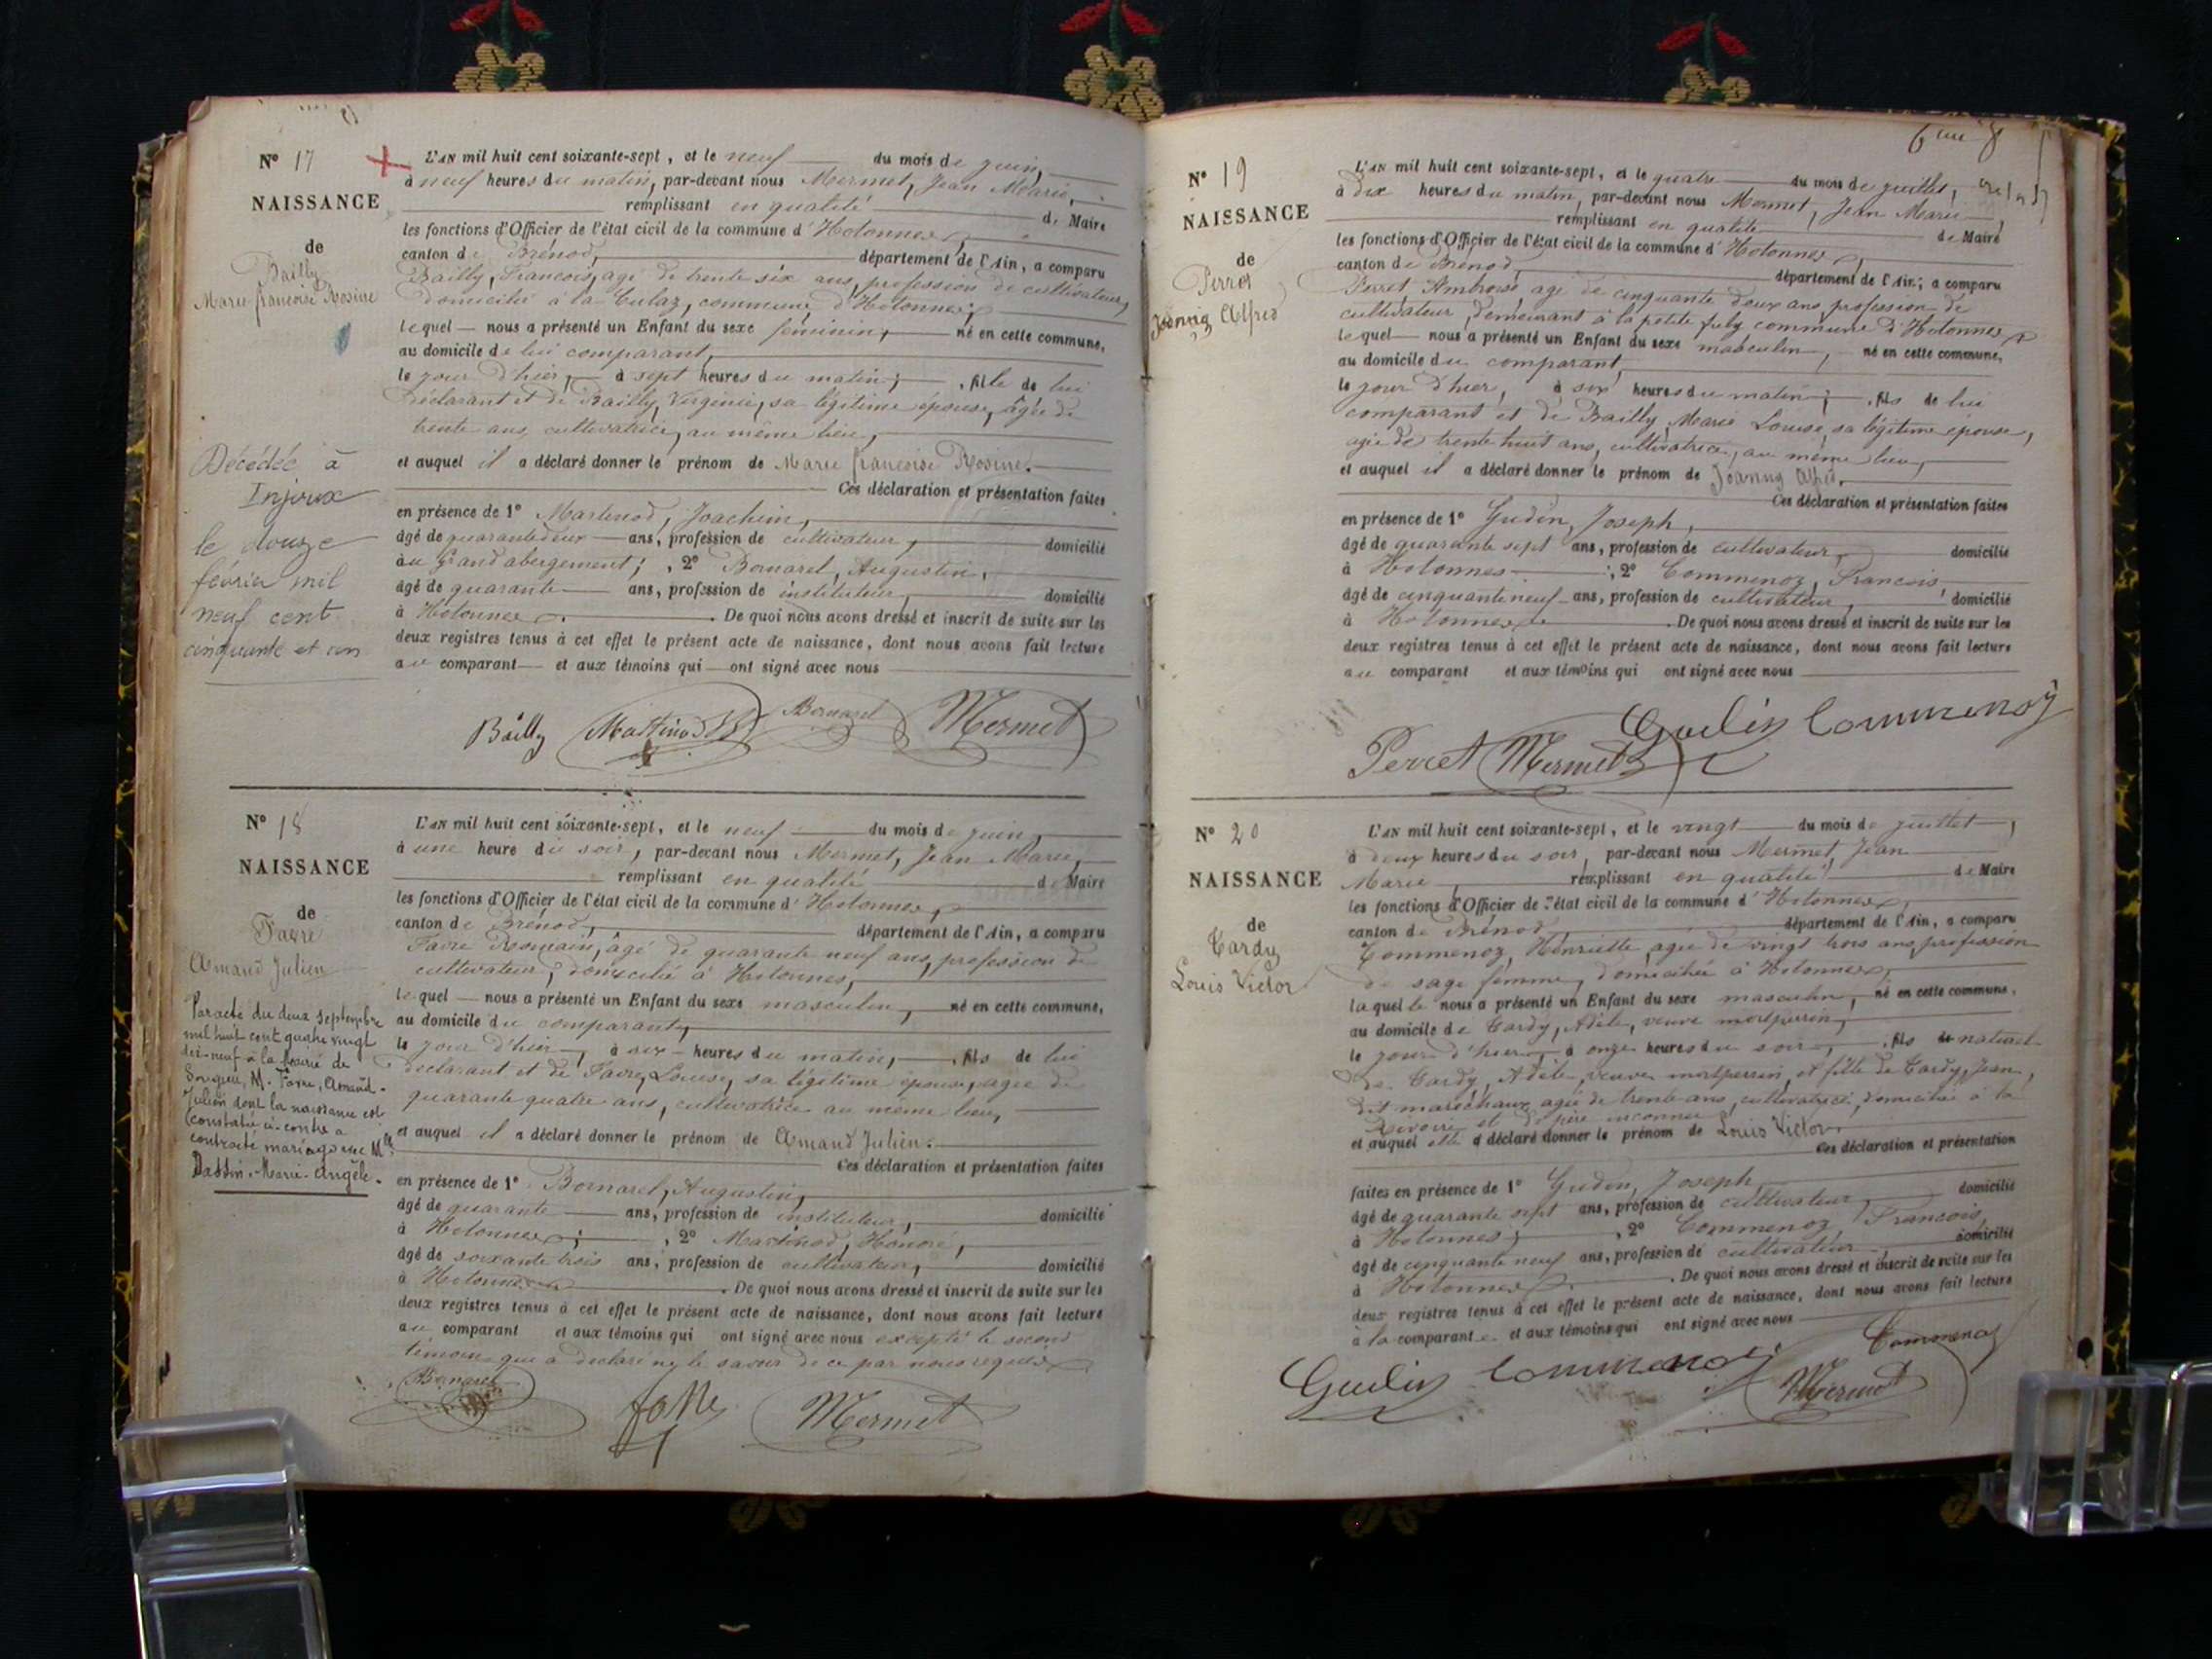 N° 17
NAISSANCE
de
Bailly
Marie françoise Rosine
Décédée à
Injoux
le douze
février mil
neuf cent
cinquante et un
L'AN mil huit cent soixante-sept, et le neuf du mois de juin,
à neuf heures du matin, par-devant nous Mermet, Jean Marie,
remplissant en qualité de Maire
les fonctions d'Officier de l'état civil de la commune d'Hotonnes,
canton de Brénod, département de l'Ain, a comparu
Bailly, François, agé de trente six ans, profession de cultivateur,
domicilié à la Culaz, commune d'Hotonnes,
lequel nous a présenté un Enfant du sexe féminin, né en cette commune,
au domicile de lui comparant,
le jour d'hier, à sept heures du matin; , fille de lui
déclarant et de Bailly, Virginie, sa légitime épouse, âgée de
trente ans, cultivatrice, au même lieu,
et auquel il a déclaré donner le prénom de Marie françoise Rosine.
Ces déclaration et présentation faites
en présence de 1° Martinod, Joachim,
âgé de quarante deux ans, profession de cultivateur, domicilié
au Grand abergement; , 2° Bornarel, Augustin,
âgé de quarante ans, profession de instituteur, domicilié
à Hotonnes. De quoi nous avons dressé et inscrit de suite sur les
deux registres tenus à cet effet le présent acte de naissance, dont nous avons fait lecture
au comparant et aux témoins qui ont signé avec nous
Bailly Martinod Bornarel Mermet
N° 18
NAISSANCE
de
Favre
Amand Julien
Par acte du deux septembre
mil huit cent quatre vingt
dix-neuf à la mairie de
M. Favre, Amand-
Julien dont la naissance est
constatée ci-contre a
contracté mariage avec Mlle
Marie-Angèle.
L'AN mil huit cent soixante-sept, et le neuf du mois de juin,
à une heure du soir, par-devant nous Mermet, Jean Marie,
remplissant en qualité de Maire
les fonctions d'Officier de l'état civil de la commune d'Hotonnes,
canton de Brénod, département de l'Ain, a comparu
Favre Romain, âgé de quarante neuf ans, profession de
cultivateur, domicilié à Hotonnes,
lequel nous a présenté un Enfant du sexe masculin, né en cette commune,
au domicile du comparant,
le jour d'hier, à six heures du matin, , fils de lui
déclarant et de Favre, Louise, sa légitime épouse, agée de
quarante quatre ans, cultivatrice au même lieu,
et auquel il a déclaré donner le prénom de Amand Julien.
Ces déclaration et présentation faites
en présence de 1° Bornarel, Augustin,
âgé de quarante ans, profession de instituteur, domicilié
à Hotonnes; , 2° Martinod, Honoré,
âgé de soixante trois ans, profession de cultivateur, domicilié
à Hotonnes. De quoi nous avons dressé et inscrit de suite sur les
deux registres tenus à cet effet le présent acte de naissance, dont nous avons fait lecture
au comparant et aux témoins qui ont signé avec nous excepté le second
témoin que a déclaré ny le savoir de ce par nous requis
Bornarel Mermet
N° 19
NAISSANCE
de
Perret
Joanny Alfred
L'AN mil huit cent soixante-sept, et le quatre du mois de juillet,
à dix heures du matin, par-devant nous Mermet, Jean Marie
remplissant en qualité de Maire
les fonctions d'Officier de l'état civil de la commune d'Hotonnes,
canton de Brénod, département de l'Ain, a comparu
Perret, Ambroise agé de cinquante deux ans profession de
cultivateur, demeurant à la petite commune d'Hotonnes
lequel nous a présenté un Enfant du sexe masculin, né en cette commune,
au domicile du comparant,
le jour d'hier, à six heures du matin; , fils de lui
comparant et de Bailly, Marie Louise, sa légitime épouse,
agée de trente huit ans, cultivatrice, au même lieu,
et auquel il a déclaré donner le prénom de Joanny Alfred.
Ces déclaration et présentation faites
en présence de 1° Gudin, Joseph,
âgé de quarante sept ans, profession de cultivateur, domicilié
à Hotonnes ; 2° Commenoz, François,
âgé de cinquante neuf ans, profession de cultivateur, domicilié
à Hotonnes. De quoi nous avons dressé et inscrit de suite sur les
deux registres tenus à cet effet le présent acte de naissance, dont nous avons fait lecture
au comparant et aux témoins qui ont signé avec nous
Gudin Commenoz
Perret Mermet
N° 20
NAISSANCE
de
Tardy
Louis Victor
L'AN mil huit cent soixante-sept, et le vingt du mois de juillet,
à deux heures du soir, par-devant nous Mermet, Jean
Marie remplissant en qualité de Maire
les fonctions d'Officier de l'état civil de la commune d'Hotonnes,
canton de Brénod, département de l'Ain, a comparu
Commenoz, Henriette, agée de vingt trois ans, profession
de sage femme, domiciliée à Hotonnes,
laquelle nous a présenté un Enfant du sexe masculin, né en cette commune,
au domicile de Tardy, Adèle, veuve
le jour d'hier, à onze heures du soir, , fils de naturel
de Tardy, Adèle, veuve et fille de Tardy, Jean,
dit maréchaux, agée de trente ans, cultivatrice, domiciliée à la
Rivoire et de père inconnu
et auquel elle a déclaré donner le prénom de Louis Victor.
Ces déclaration et présentation
faites en présence de 1° Gudin, Joseph,
âgé de quarante sept ans, profession de cultivateur, domicilié
à Hotonnes; , 2° Commenoz, François,
âgé de cinquante neuf ans, profession de cultivateur domicilié
à Hotonnes. De quoi nous avons dressé et inscrit de suite sur les
deux registres tenus à cet effet le présent acte de naissance, dont nous avons fait lecture
à la comparante et aux témoins qui ont signé avec nous
Commenoz
Gudin Commenoz Mermet